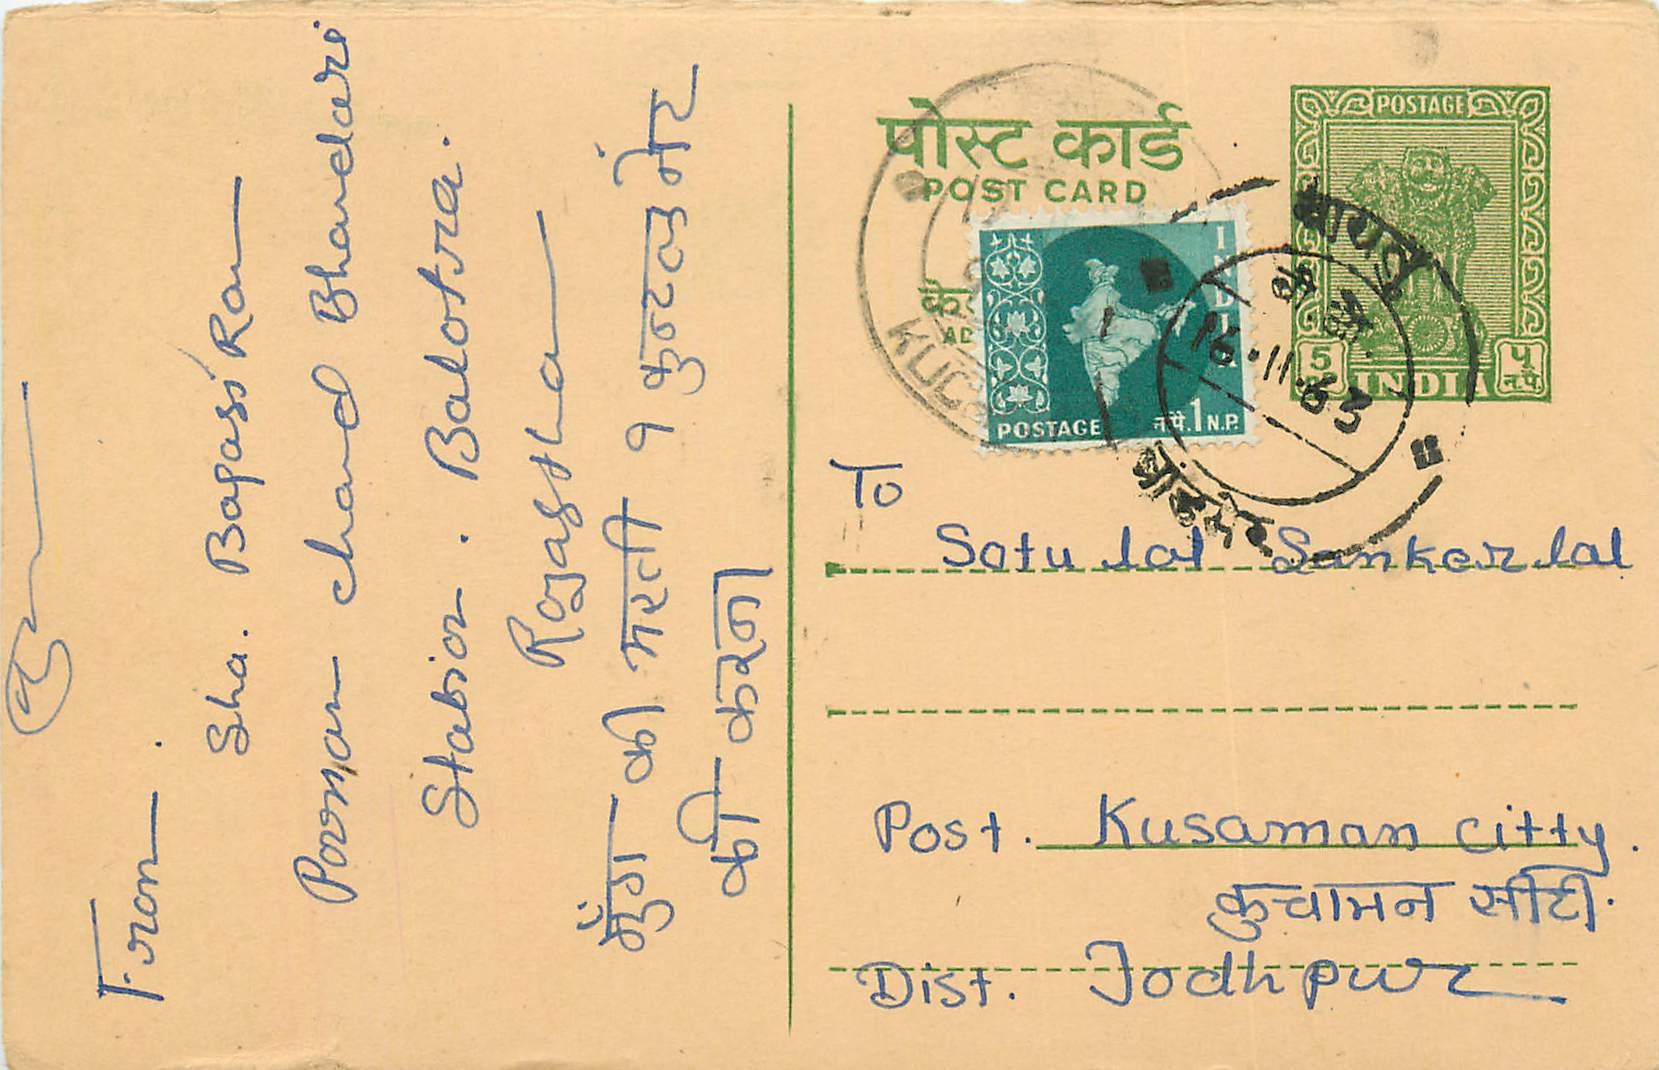 From.
Sha. Bagass Ram
Poonam chand Bhandari
Station. Balotra.
Rajastha
मुँगा की भरती १ कुन्टल
की करणा
पोस्ट कार्ड
POST CARD
POSTAGE
5
INDIA
५
न.पै.
INDIA
POSTAGE
न.पै. 1 N.P.
के
AD
KUC
16.11.63
To
Satu lal Sankerlal
Post. Kusaman citty.
कुचामन सीटी.
Dist. Jodhpur